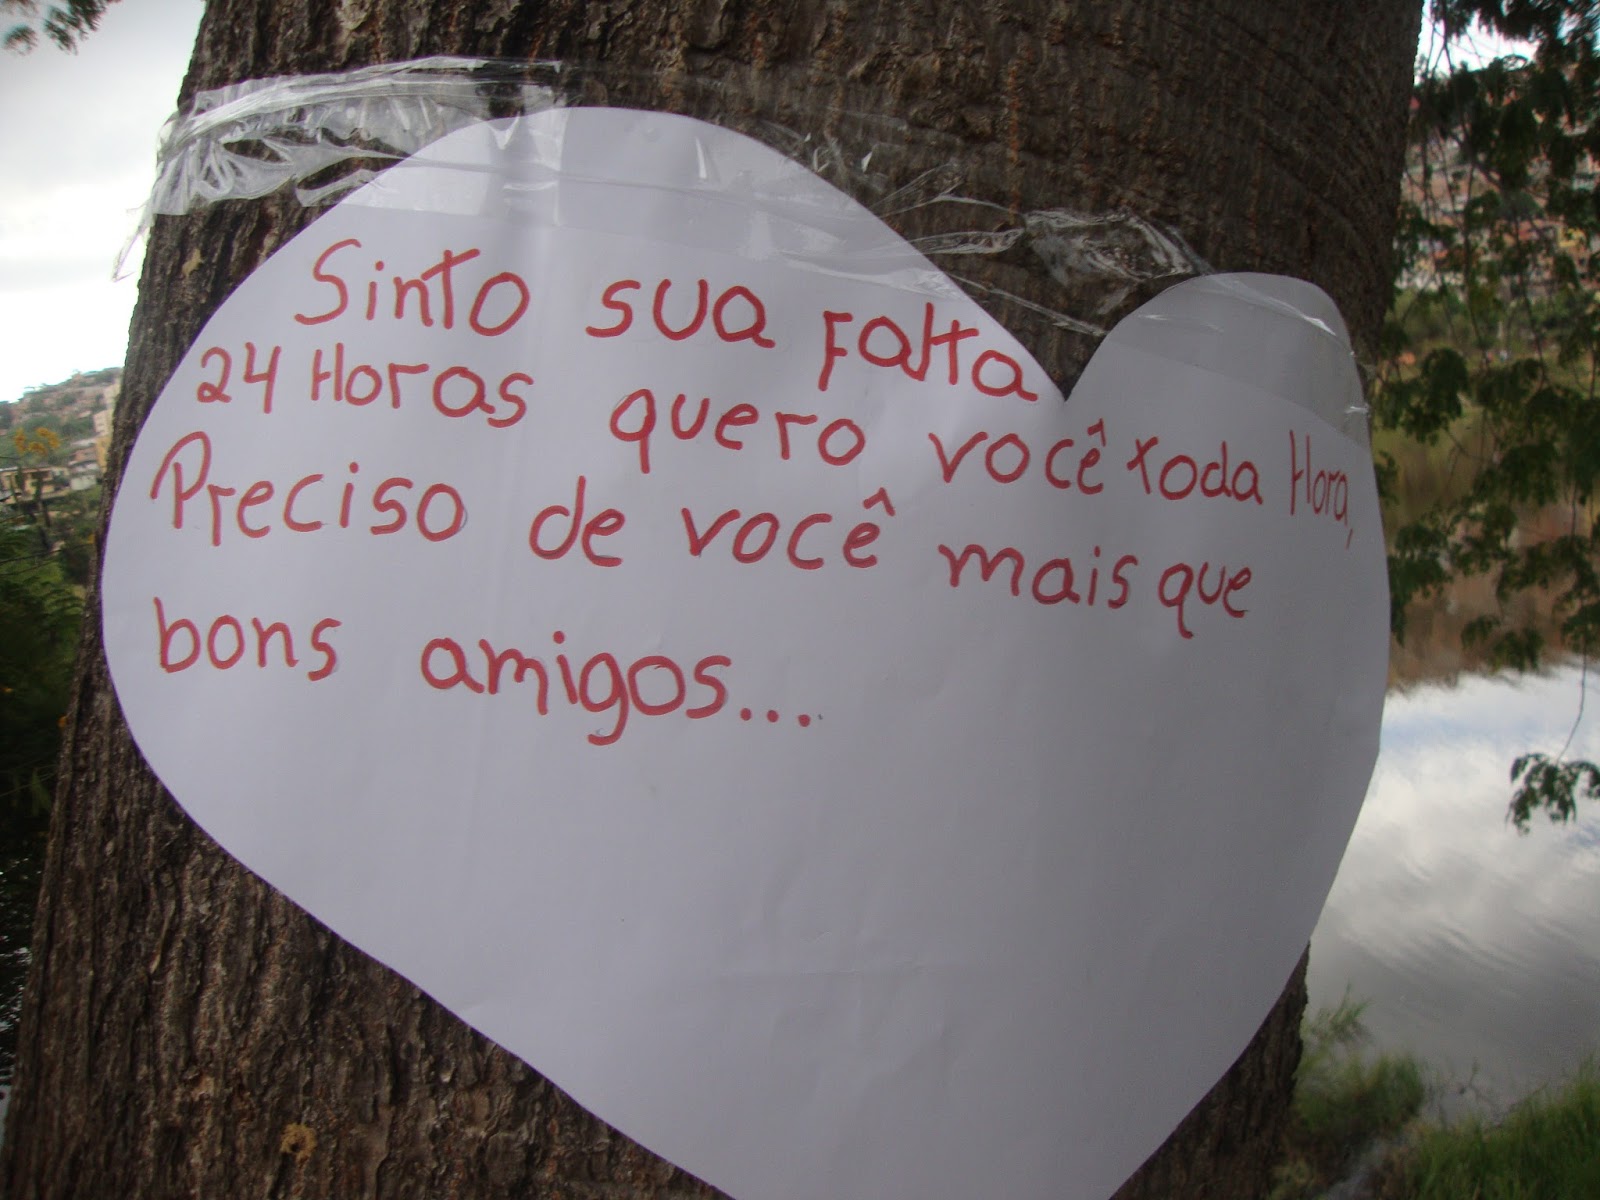 Sinto sua falta
24 Horas quero você toda Hora,
Preciso de você mais que
bons amigos...